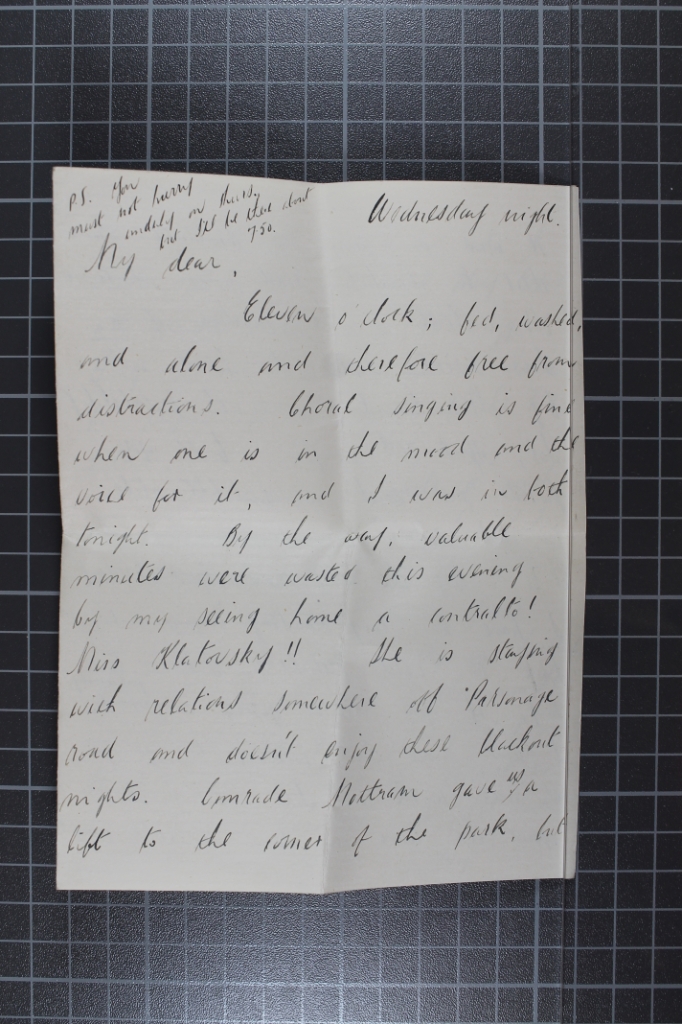 P.S. You
must not hurry
unduly on Thurs.
but I'll be there about
7.50.
Wednesday night.
My dear,
Eleven o'clock; fed, washed,
and alone and therefore free from
distractions. Choral singing is fine
when one is in the mood and the
voice for it, and I was in both
tonight. By the way, valuable
minutes were wasted this evening
by my seeing home a contralto!
Miss Klatovsky!! She is staying
with relations somewhere off Parsonage
road and doesn't enjoy these blackout
nights. Comrade Mottram gave us a
lift to the corner of the park, but